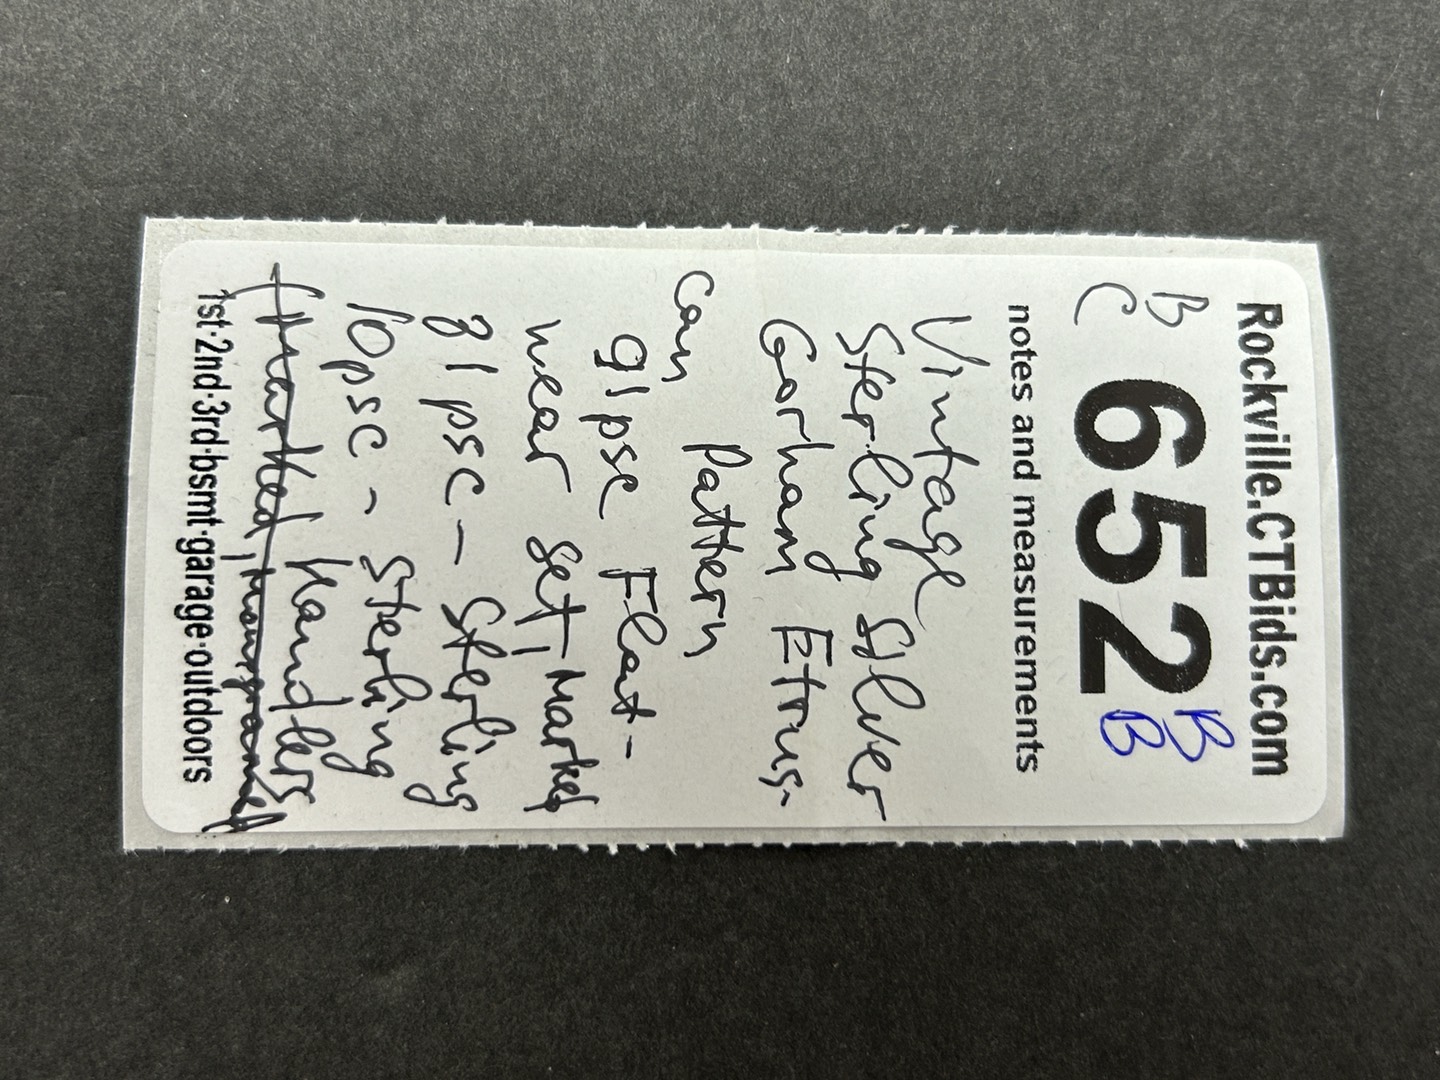 Rockville.CTBids.com
B
C 652 B
B
notes and measurements
Vintage
Sterling Silver
Gorham Etrus-
can Pattern
91psc Flat-
wear set, Marked
81psc - Sterling
10psc - Sterling
Handlers
(Marked, Monogramed)
1st·2nd·3rd·bsmt·garage·outdoors